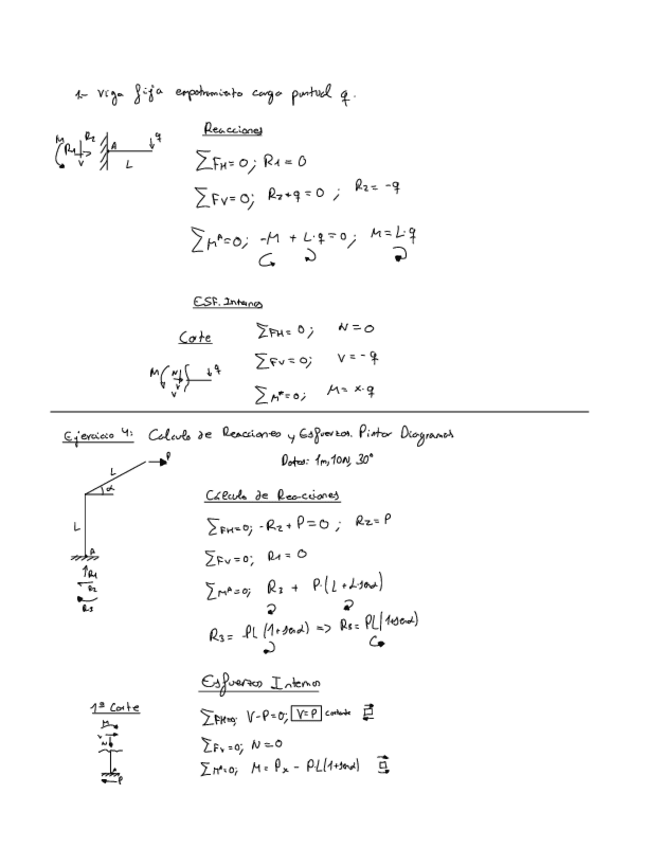 1- Viga fija empotramiento carga puntual q.
Reacciones
M R1 R2 V A q L
∑FH=0; R1=0
∑FV=0; R2+q=0; R2=-q
∑M^A=0; -M + L·q=0; M=L·q
ESF. Internos
Corte
∑FH=0; N=0
∑FV=0; V=-q
M N V q
∑M*=0; M=x·q
Ejercicio 4: Calculo de Reacciones y Esfuerzos. Pintar Diagramas
Datos: 1m, 10N, 30°
P L α L A R1 R2 R3
Cálculo de Reacciones
∑FH=0; -R2+P=0; R2=P
∑FV=0; R1=0
∑M^A=0; R3 + P(L+Lsenα)
R3= PL(1+senα) => R3=PL(1+senα)
Esfuerzos Internos
1ª Corte
M V N P
∑FH=0; V-P=0; V=P cortante
∑FV=0; N=0
∑M*=0; M=Px-PL(1+senα)